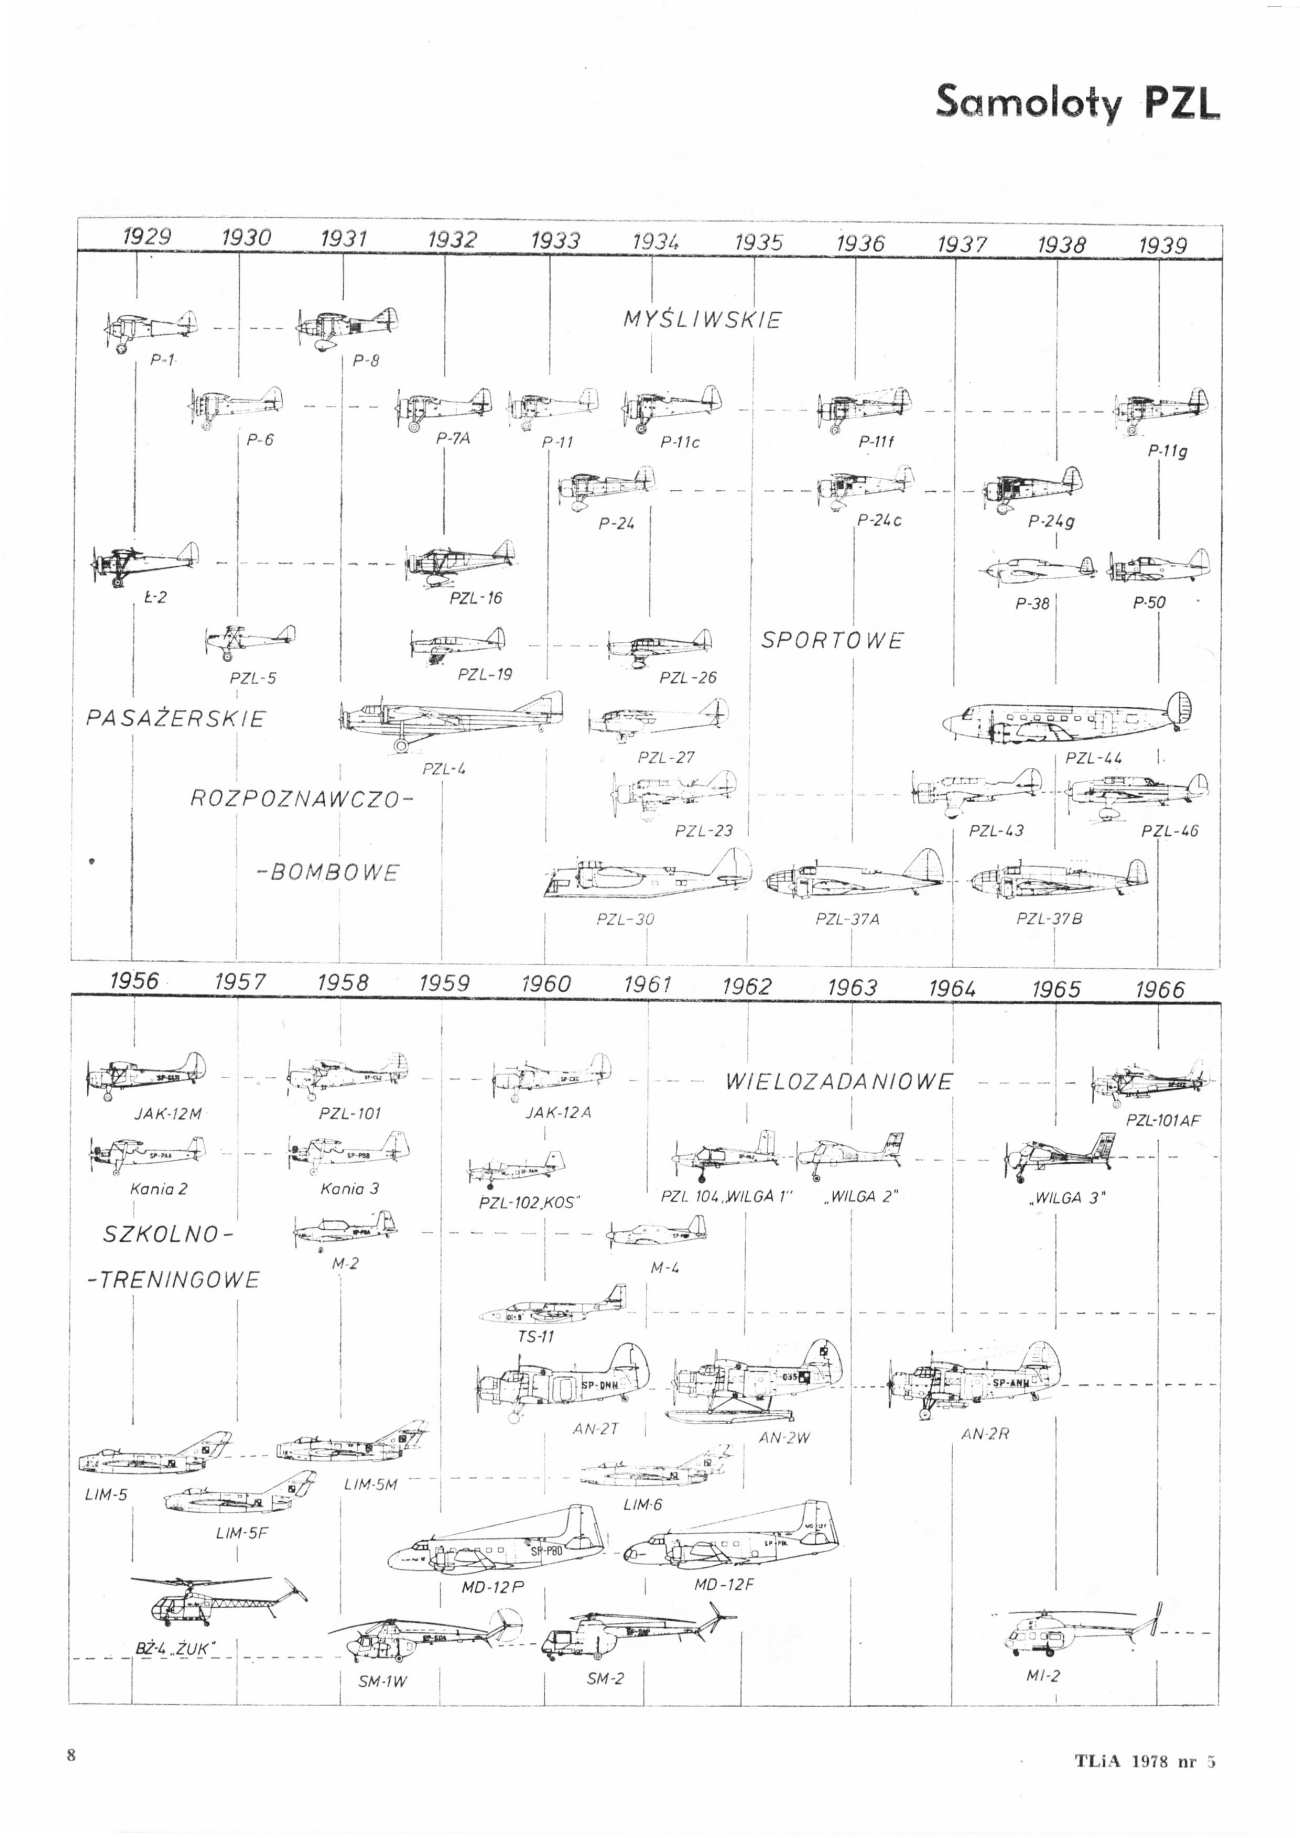 Samoloty PZL
1929 1930 1931 1932 1933 1934 1935 1936 1937 1938 1939
MYŚLIWSKIE
P-1 P-8
P-6 P-7A P-11 P-11c P-11f P-11g
P-24 P-24c P-24g
Ł-2 PZL-16 P-38 P-50
SPORTOWE
PZL-5 PZL-19 PZL-26
PASAŻERSKIE
PZL-4 PZL-27 PZL-44
ROZPOZNAWCZO-
PZL-23 PZL-43 PZL-46
-BOMBOWE
PZL-30 PZL-37A PZL-37B
1956 1957 1958 1959 1960 1961 1962 1963 1964 1965 1966
WIELOZADANIOWE
JAK-12M PZL-101 JAK-12A PZL-101AF
SP-PAA SP-PBB
Kania 2 Kania 3 PZL-102„KOS" PZL 104„WILGA 1" „WILGA 2" „WILGA 3"
SZKOLNO-
M-2 M-4
-TRENINGOWE
TS-11
SP-ANW
035
AN-2T AN-2W AN-2R
LIM-5 LIM-5M LIM-6
LIM-5F
SP-PBD
MD-12P MD-12F
BŻ-4 „ŻUK"
SM-1W SM-2 MI-2
8
TLiA 1978 nr 5